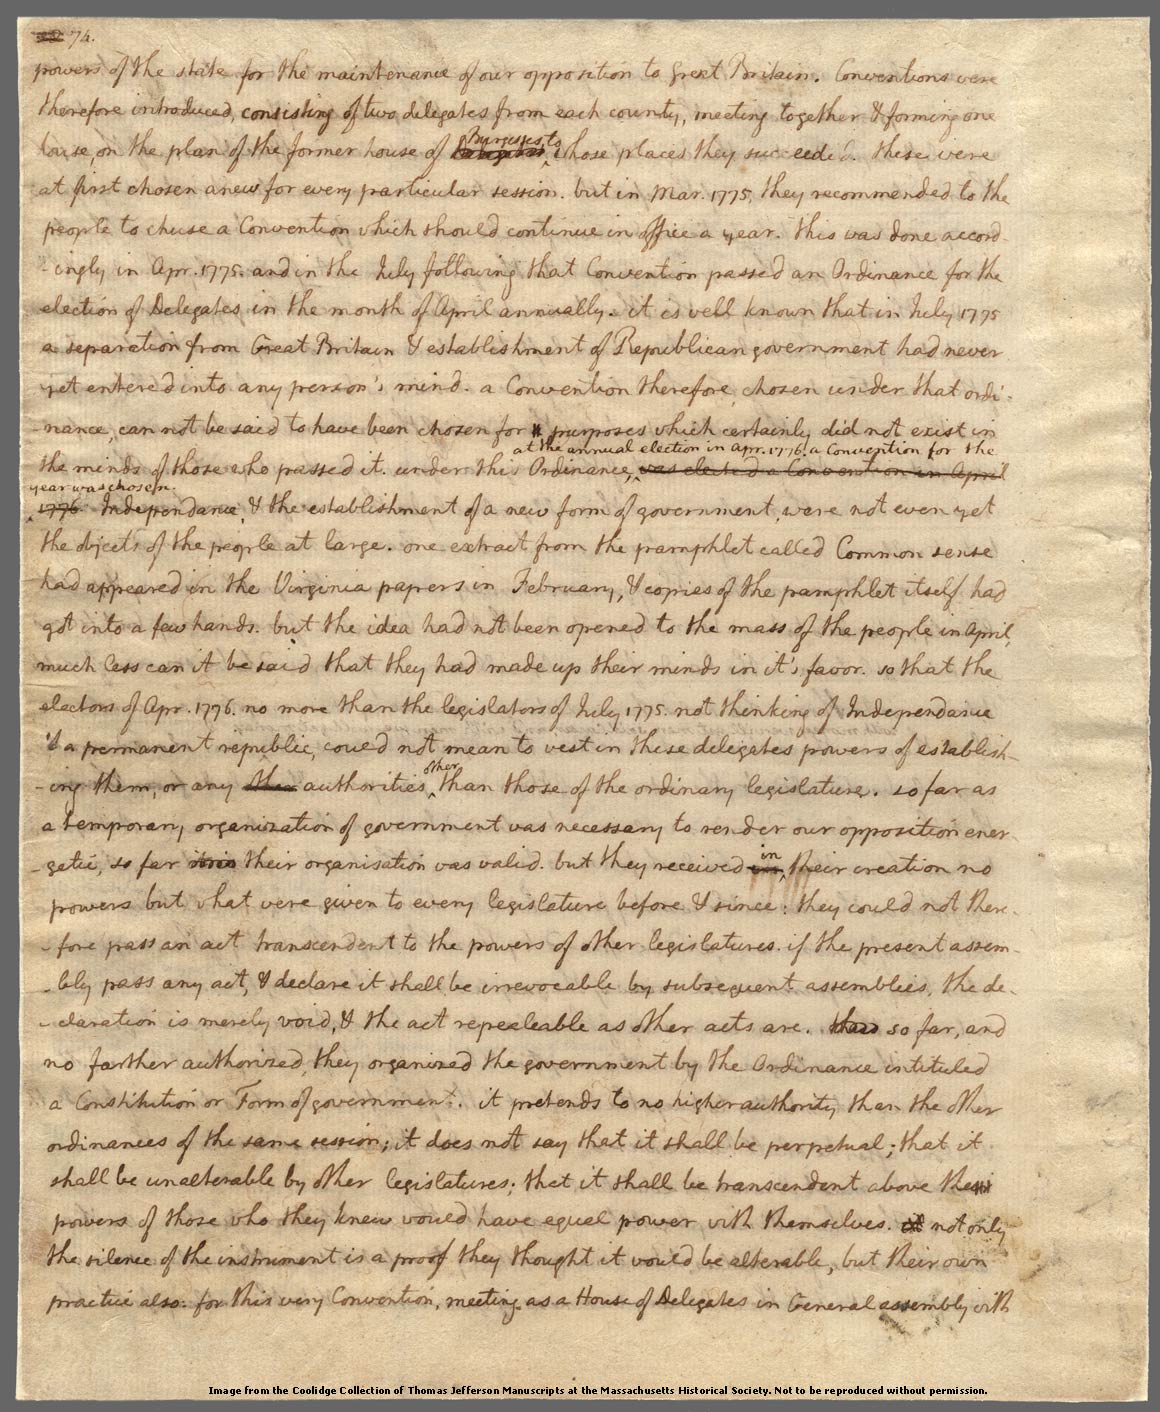 74.
powers of the state for the maintenance of our opposition to Great Britain. Conventions were
therefore introduced, consisting of two delegates from each county, meeting together & forming one
house, on the plan of the former house of Burgesses, to whose places they succeeded. these were
at first chosen anew for every particular session. but in Mar. 1775. they recommended to the
people to chuse a Convention which should continue in office a year. this was done accord-
-ingly in Apr. 1775. and in the July following that Convention passed an Ordinance for the
election of Delegates in the month of April annually. it is well known that in July 1775
a separation from Great Britain & establishment of Republican government had never
yet entered into any person's mind. a Convention therefore, chosen under that ordi-
-nance, can not be said to have been chosen for purposes which certainly did not exist in
at the annual election in Apr. 1776. a Convention for the
the minds of those who passed it. under this Ordinance, was elected a Convention in April
year was chosen.
1776. Independance, & the establishment of a new form of government, were not even yet
the objects of the people at large. one extract from the pamphlet called Common sense
had appeared in the Virginia papers in February, & copies of the pamphlet itself had
got into a few hands. but the idea had not been opened to the mass of the people in April,
much less can it be said that they had made up their minds in it's favor. so that the
electors of Apr. 1776. no more than the legislators of July 1775. not thinking of Independance
& a permanent republic, could not mean to vest in these delegates powers of establish-
-ing them, or any other authorities other than those of the ordinary legislature. so far as
a temporary organization of government was necessary to render our opposition ener-
-getic, so far their organisation was valid. but they received in their creation no
powers but what were given to every legislature before & since: they could not there-
-fore pass an act transcendent to the powers of other legislatures. if the present assem-
-bly pass any act, & declare it shall be irrevocable by subsequent assemblies, the de-
-claration is merely void, & the act repealeable as other acts are. so far, and
no farther authorized, they organized the government by the Ordinance intituled
a Constitution or Form of government. it pretends to no higher authority than the other
ordinances of the same session; it does not say that it shall be perpetual; that it
shall be unalterable by other legislatures; that it shall be transcendent above the
powers of those who they knew would have equal power with themselves. not only
the silence of the instrument is a proof they thought it would be alterable, but their own
practice also: for this very Convention, meeting as a House of Delegates in General assembly with
Image from the Coolidge Collection of Thomas Jefferson Manuscripts at the Massachusetts Historical Society. Not to be reproduced without permission.